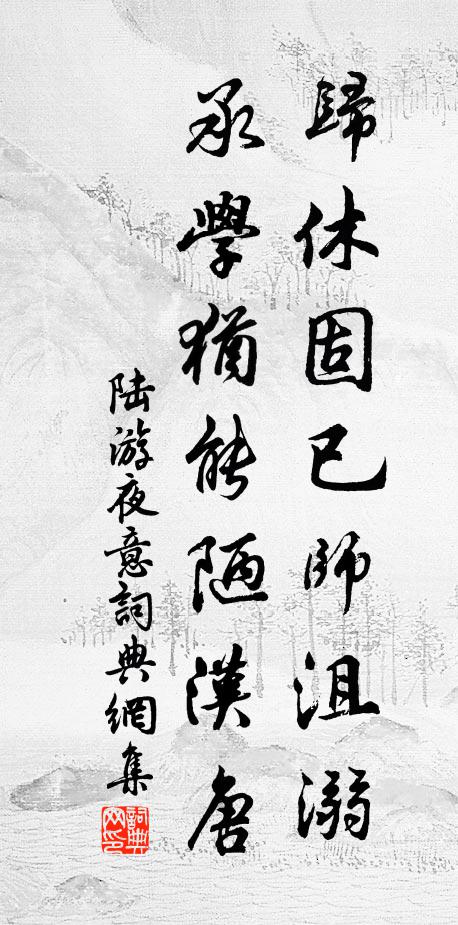 歸休固已師沮溺
承學猶能陋漢唐
陆游夜意詞典網集
詞典网印